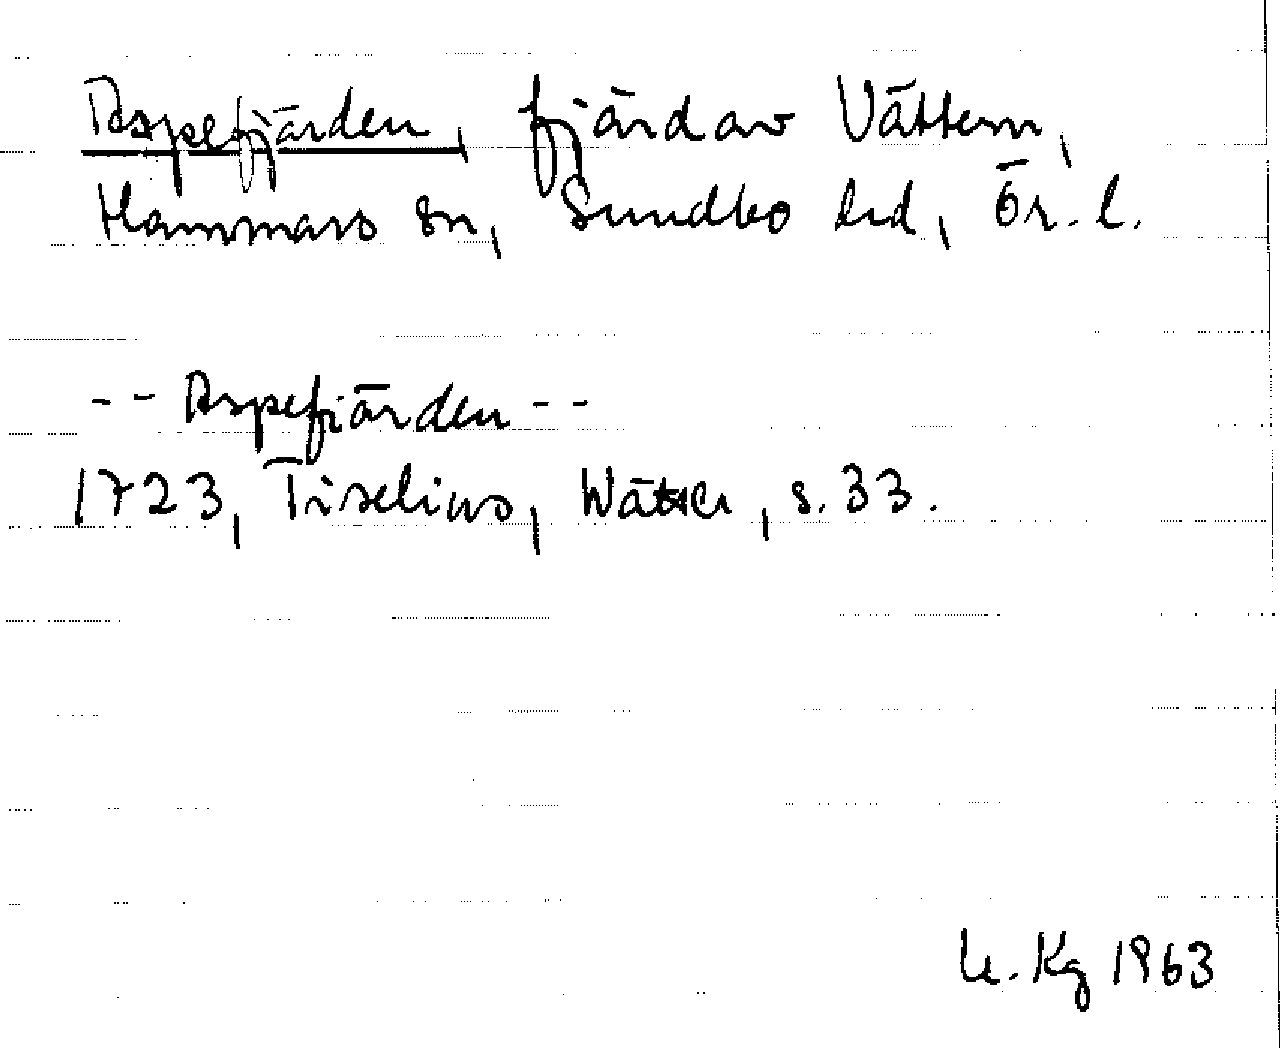 Aspefjärden, fjärd av Vättern,
Hammars sn, Sundbo hd, Ör. l.
-- Aspefiärden --
1723, Tiselius, Wätter, s. 33.
U. Kg 1963